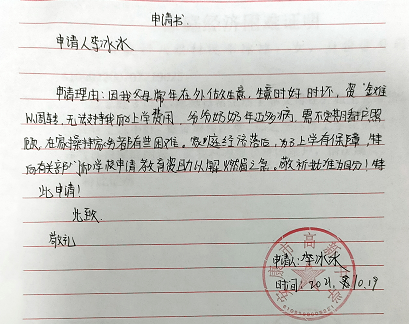 申请书
申请人李冰冰
申请理由:因我父母常年在外做生意,生意时好时坏,资金难
以周转,无法支持我的上学费用,爷爷奶奶年迈多病,需不定期看护照
顾,在家操持家务都有些困难。家庭经济落后,为了上学有保障,特
向有关部门和学校申请教育资助以解燃眉之急。敬祈批准为盼!特
此申请!
此致
敬礼
申请人:李冰冰
时间:2021. 10.19